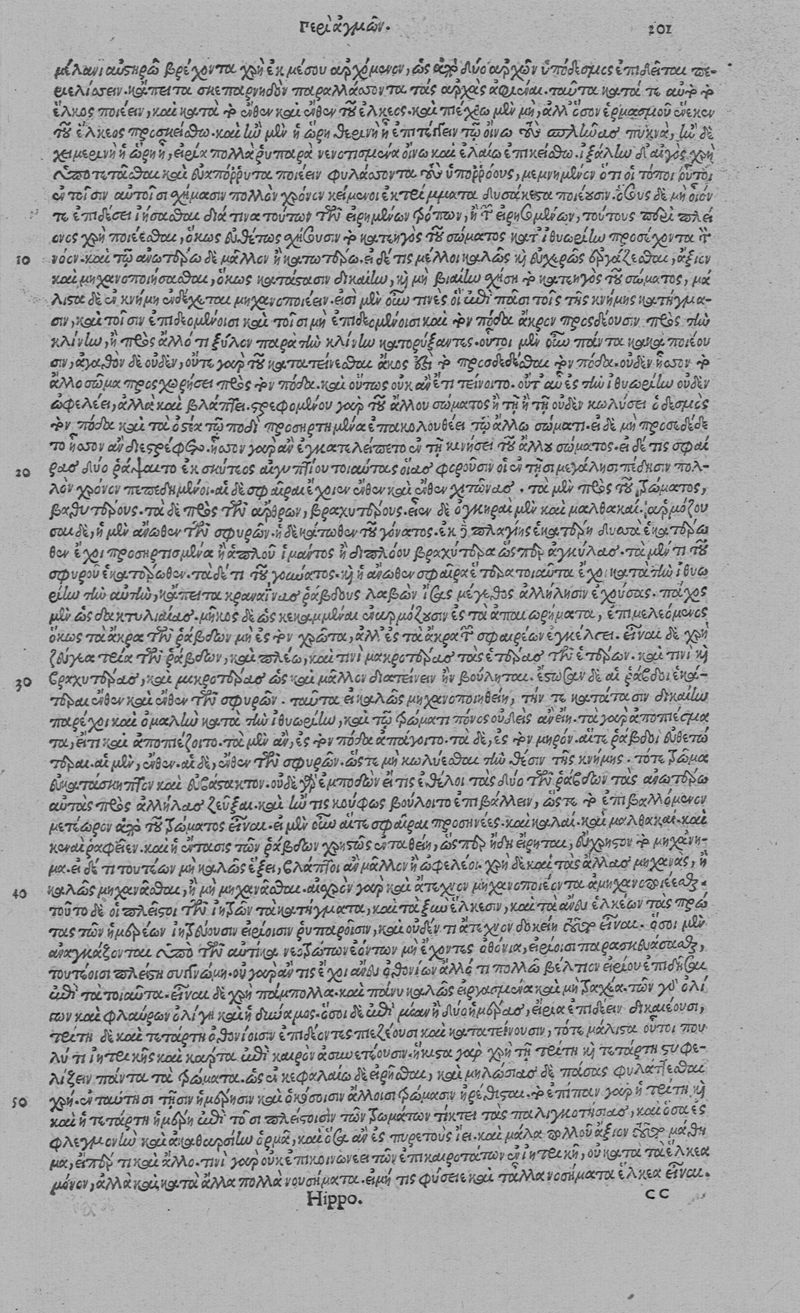 Περὶ ἀγμῶν. 201
μέλανι αὐστηρῷ βρέχοντα χρὴ ἐκ μέσου ἀρχόμενον, ὡς ἀπὸ δύο ἀρχῶν ὑπόδεσμος ἐπιδεῖται πε-
ριελίσσειν. κἄπειτα σκεπαρνηδὸν παραλλάσσοντα τὰς ἀρχὰς ἀφιέναι. ταῦτα κατά τε αὐτὸ τὸ
ἕλκος ποιέειν, καὶ κατὰ τὸ ἔνθεν καὶ ἔνθεν τοῦ ἕλκεος. καὶ πιέχθω μὲν μὴ, ἀλλ' ὅσον ἑρμασμοῦ ἕνεκεν
τοῦ ἕλκεος προσκείσθω. καὶ ἢν μὲν ἡ ὥρη θερινὴ ᾖ ἐπιτέγγειν τῷ οἴνῳ τοὺς σπλῆνας πυκνά, ἢν δὲ
χειμερινὴ ἡ ὥρη ᾖ, εἴρια πολλὰ ῥυπαρὰ νενοτισμένα οἴνῳ καὶ ἐλαίῳ ἐπικείσθω. ἰξάλην δ' αἰγὸς χρὴ
ὑποτετάσθαι καὶ εὐαπόρρυτα ποιέειν φυλάσσοντα τοὺς ὑπορρόους, μεμνημένον ὅτι οἱ τόποι οὗτοι
ἐν τοῖσιν αὐτοῖσι σχήμασιν πολλὸν χρόνον κείμενοι ἐκτρίμματα δυσάκεστα ποιέουσιν. ὅσους δὲ μὴ οἷόν
τε ἐπιδέσει ἰήσασθαι διά τινα τούτων τῶν εἰρημένων τρόπων, ἢ τῶν εἰρησομένων, τούτους περὶ πλεί
ονος χρὴ ποιέεσθαι, ὅκως εὐθέτως σχήσουσιν τὸ κατεηγὸς τοῦ σώματος κατ' ἰθυωρίην προσέχοντα τὸν
10 νόον. καὶ τῷ ἀνωτέρω δὲ μᾶλλον ἢ κατωτέρω. εἰ δέ τις μέλλοι καλῶς καὶ εὐχερῶς ἐργάζεσθαι, ἄξιον
καὶ μηχανοποιήσασθαι, ὅκως κατάτασιν δικαίην, καὶ μὴ βιαίην σχήσῃ τὸ κατεηγὸς τοῦ σώματος, μά
λιστα δὲ ἐν κνήμῃ ἐνδέχεται μηχανοποιέειν. εἰσὶ μὲν οὖν τινὲς οἳ ἐπὶ πᾶσι τοῖς τῆς κνήμης κατήγμα-
σιν, καὶ τοῖσιν ἐπιδεομένοισι καὶ τοῖσι μὴ ἐπιδεομένοισι καὶ τὸν πόδα ἄκρον προσδέουσιν πρὸς τὴν
κλίνην, ἢ πρὸς ἄλλό τι ξύλον παρὰ τὴν κλίνην κατορύξαντες. οὗτοι μὲν οὖν πάντα κακὰ ποιέου
σιν, ἀγαθὸν δὲ οὐδέν, οὔτε γὰρ τοῦ κατατείνεσθαι ἄκος ἐστὶ τὸ προσδεδέσθαι τὸν πόδα. οὐδὲν ἧσσον τὸ
ἄλλο σῶμα προσχωρήσει πρὸς τὸν πόδα. καὶ οὕτως οὐκ ἂν ἔτι τείνοιτο. οὔτ' αὖ ἐς τὴν ἰθυωρίην οὐδὲν
ὠφελέει, ἀλλὰ καὶ βλάπτει. στρεφομένου γὰρ τοῦ ἄλλου σώματος ἢ τῇ ἢ τῇ οὐδὲν κωλύσει ὁ δεσμὸς
τὸν πόδα καὶ τὰ ὀστέα τῷ ποδὶ προσηρτημένα ἐπακολουθέειν τῷ ἄλλῳ σώματι. εἰ δὲ μὴ προσεδέδε
το ἧσσον ἂν διεστρέφετο. ἧσσον γὰρ ἂν ἐγκατελείπετο ἐν τῇ κινήσει τοῦ ἄλλου σώματος. εἰ δέ τις σφαί
20 ρας δύο ῥάψαιτο ἐκ σκύτεος αἰγυπτίου τοιαύτας οἵας φοροῦσιν οἱ ἐν τῇσι μεγάλῃσι πέδῃσιν πολ-
λὸν χρόνον πεπεδημένοι. αἱ δὲ σφαῖραι ἔχοιεν ἔνθεν καὶ ἔνθεν χιτῶνας. τὰ μὲν πρὸς τοῦ τρώματος,
βαθυτέρους. τὰ δὲ πρὸς τῶν ἄρθρων, βραχυτέρους. εἶεν δὲ ὀγκηραὶ μὲν καὶ μαλθακαὶ. ἁρμόζου
σαι δὲ, ἡ μὲν ἄνωθεν τῶν σφυρῶν. ἡ δὲ κάτωθεν τοῦ γόνατος. ἐκ δὲ πλαγίης ἑκατέρη δισσὰ ἑκατέρω
θεν ἔχοι προσηρτισμένα ἢ ἁπλοῦ ἱμάντος ἢ διπλόου βραχύτερα ὥσπερ ἀγκύλας. τὰ μέν τι τοῦ
σφυροῦ ἑκατέρωθεν. τὰ δέ τι τοῦ γούνατος. καὶ ἡ ἄνωθεν σφαῖρα ἕτερα τοιαῦτα ἔχοι κατὰ τὴν ἰθυω
ρίην τὴν αὐτήν, κἄπειτα κραναΐνας ῥάβδους λαβὼν ἴσας μέγεθος ἀλλήλῃσιν ἐχούσας. πάχος
μὲν ὡς δακτυλιαίας. μῆκος δὲ ὡς κεκαμμέναι ἐναρμόζουσιν ἐς τὰ ἀπαιωρήματα, ἐπιμελεόμενος
ὅκως τὰ ἄκρα τῶν ῥάβδων μὴ ἐς τὸν χρῶτα, ἀλλ' ἐς τὰ ἄκρα τῶν σφαιρέων ἐγκέλσει. εἶναι δὲ χρὴ
ζεύγεα τρία τῶν ῥάβδων, καὶ πλέω, καὶ τινὶ μακροτέρας τὰς ἑτέρας τῶν ἑτέρων. καὶ τινὶ καὶ
30 βραχυτέρας, καὶ μικροτέρας ὡς καὶ μᾶλλον διατείνειν ἢν βούληται. ἔστωσαν δὲ αἱ ῥάβδοι ἑκά-
τεραι ἔνθεν καὶ ἔνθεν τῶν σφυρῶν. ταῦτα εἰ καλῶς μηχανοποιηθείη, τήν τε κατάτασιν δικαίην
παρέχοι καὶ ὁμαλὴν κατὰ τὴν ἰθυωρίην, καὶ τῷ τρώματι πόνος οὐδεὶς ἂν εἴη. τὰ γὰρ ἀποπιέσμα
τα, εἴ τι καὶ ἀποπιέζοιτο. τὰ μὲν ἂν, ἐς τὸν πόδα ἀπάγοιτο. τὰ δὲ, ἐς τὸν μηρόν. αἵ τε ῥάβδοι εὐθετώ
τεραι. αἱ μὲν, ἔνθεν. αἱ δὲ, ἔνθεν τῶν σφυρῶν. ὥστε μὴ κωλύεσθαι τὴν θέσιν τῆς κνήμης. τό τε τρῶμα
εὐκατάσκηπτον καὶ εὐβάστακτον. οὐδὲ γὰρ ἐμποδὼν εἴ τις ἐθέλοι τὰς δύο τῶν ῥάβδων τὰς ἀνωτέρω
αὐτὰς πρὸς ἀλλήλας ζεῦξαι. καὶ ἤν τις κούφως βούλοιτο ἐπιβάλλειν, ὥστε τὸ ἐπιβαλλόμενον
μετέωρον ἀπὸ τοῦ τρώματος εἶναι. εἰ μὲν οὖν αἵ τε σφαῖραι προσηνέες. καὶ καλαὶ. καὶ μαλθακαὶ. καὶ
καιναὶ ῥαφεῖεν. καὶ ἡ ἔντασις τῶν ῥάβδων χρηστῶς ἐνταθείη, ὥσπερ ἤδη εἴρηται, εὔχρηστον τὸ μηχάνη-
μα. εἰ δέ τι τουτέων μὴ καλῶς ἕξει, βλάπτοι ἂν μᾶλλον ἢ ὠφελέοι. χρὴ δὲ καὶ τὰς ἄλλας μηχανὰς, ἢ
40 καλῶς μηχανᾶσθαι, ἢ μὴ μηχανᾶσθαι. αἰσχρὸν γὰρ καὶ ἄτεχνον μηχανοποιέοντα ἀμηχανοποιέεσθαι.
τοῦτο δὲ οἱ πλεῖστοι τῶν ἰητρῶν τὰ κατήγματα, καὶ τὰ ξὺν ἕλκεσιν, καὶ τὰ ἄνευ ἑλκέων τὰς πρώ
τας τῶν ἡμερέων ἰητρεύουσιν εἰρίοισιν ῥυπαροῖσιν, καὶ οὐδέν τι ἄτεχνον δοκέει τοῦτο εἶναι. ὅσοι μὲν
ἀναγκάζονται ὑπὸ τῶν αὐτίκα νεοτρώτων ἐόντων μὴ ἔχοντες ὀθόνια, εἰρίοισι παρασκευάσασθαι,
τουτέοισι πλείστη συγγνώμη. οὐ γὰρ ἄν τις ἔχοι ἄνευ ὀθονίων ἄλλό τι πολλῷ βέλτιον εἰρίου ἐπιδῆσαι
ἐπὶ τὰ τοιαῦτα. εἶναι δὲ χρὴ πάμπολλα. καὶ πάνυ καλῶς εἰργασμένα καὶ μὴ τραχέα. τῶν γὰρ ὀλί
γων καὶ φλαύρων ὀλίγη καὶ ἡ δύναμις. ὅσοι δὲ ἐπὶ μίαν ἢ δύο ἡμέρας, εἴρια ἐπιδέειν δικαιέουσι,
τρίτῃ δὲ καὶ τετάρτῃ ὀθονίοισιν ἐπιδέοντες πιέζουσι καὶ κατατείνουσιν, τότε μάλιστα οὗτοι που
λύ τι ἰητρικῆς καὶ κάρτα ἐπὶ καιρὸν ἀσυνετέουσιν. ἥκιστα γὰρ χρὴ τῇ τρίτῃ καὶ τετάρτῃ στυφε-
λίζειν πάντα τὰ τρώματα. ὡς ἐν κεφαλαίῳ δὲ εἰρῆσθαι, καὶ μηλώσιας δὲ πάσας φυλάττεσθαι
50 χρὴ. ἐν ταύτῃσι τῇσιν ἡμέρῃσιν καὶ ὁκόσοισιν ἄλλοισι τρώμασιν ἠρέθισται. τὸ ἐπίπαν γὰρ ἡ τρίτη καὶ
καὶ ἡ τετάρτη ἡμέρη ἐπὶ τοῖσι πλείστοισιν τῶν τρωμάτων τίκτει τὰς παλιγκοτήσιας, καὶ ὅσα ἐς
φλεγμονὴν καὶ ἀκαθαρσίην ὁρμᾷ, καὶ ὅσα ἂν ἐς πυρετοὺς ἴει. καὶ μάλα πολλοῦ ἄξιον τοῦτο μάθη
μα, εἴπέρ τι καὶ ἄλλο. τίνι γὰρ οὐκ ἐπικοινωνέει τῶν ἐπικαιροτάτων ἐν ἰητρικῇ, οὐ κατὰ τὰ ἕλκεα
μόνον, ἀλλὰ καὶ κατὰ ἄλλα πολλὰ νουσήματα. εἰ μή τις φύσειε καὶ τἄλλα νοσήματα ἕλκεα εἶναι.
Hippo. CC